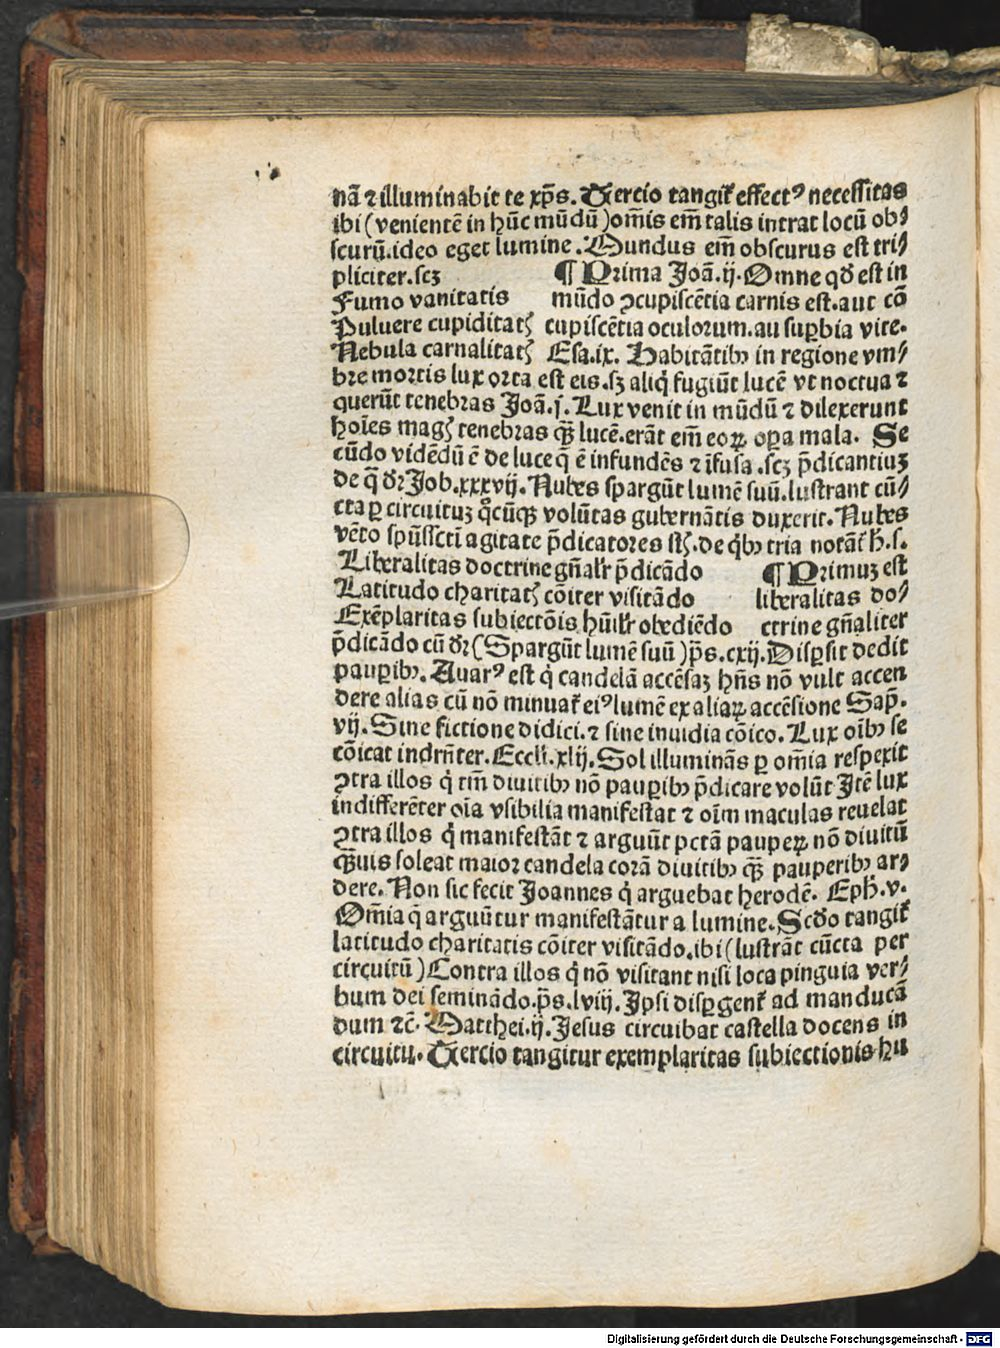 nā ⁊ illuminabit te xp̄s. Tercio tangit᷑ effectꝰ necessitas
ibi (venientē in hūc mūdū) om̄is em̄ talis intrat locū ob⸗
scurū.ideo eget lumine. Mundus em̄ obscurus est tri⸗
pliciter.scꝫ ¶ Prima Joā.ij. Omne qd̄ est in
Fumo vanitatis mūdo ꝯcupiscētia carnis est.aut cō
Puluere cupiditatꝭ cupiscētia oculorum.au suꝑbia vite.
Nebula carnalitatꝭ Esa.ix. Habitātibꝫ in regione vm⸗
bre mortis lux orta est eis.sꝫ aliq̇ fugiūt lucē vt noctua ⁊
querūt tenebras Joā.j. Lux venit in mūdū ⁊ dilexerunt
hoīes magꝭ tenebras qꝫ̄ lucē.erāt em̄ eoꝝ oꝑa mala. Se
cūdo vidēdū ē de luce q̄ ē infundēs ⁊ īfusa.scꝫ p̄dicantiuꝫ
de q̄ dr̄ Job.xxxvij. Nubes spargūt lumē suū.lustrant cū⸗
cta ꝑ circuituꝫ q̊cūqꝫ volūtas gubernātis duxerit. Nubes
vēto spūssctī agitate p̄dicatores sꝭ.de q̇bꝫ tria notāt᷑ h̄.s.
Liberalitas doctrine gn̄alr̄ p̄dicādo ¶ Primuꝫ est
Latitudo charitatꝭ cōiter visitādo liberalitas do⸗
Exēplaritas subiectōis hūilr̄ obediēdo ctrine gn̄aliter
p̄dicādo cū dr̄ (Spargūt lumē suū) p̄s.cxij. Disꝑsit dedit
pauꝑibꝫ. Auarꝰ est q̇ candelā accēsaꝫ hn̄s nō vult accen
dere alias cū nō minuat᷑ eiꝰ lumē ex aliaꝝ accēsione Sap̄.
vij. Sine fictione didici.⁊ sine inuidia cōico. Lux oībꝫ se
cōicat indrn̄ter. Eccli.xlij. Sol illuminās ꝑ om̄ia respexit
ꝯtra illos q̇ tm̄ diuitibꝫ nō pauꝑibꝫ p̄dicare volūt Itē lux
indifferēter oīa vsibilia manifestat ⁊ oīm maculas reuelat
ꝯtra illos q̇ manifestāt ⁊ arguūt pctā pauꝑeꝝ nō diuitū
qꝫ̄uis soleat maior candela corā diuitibꝫ qꝫ̄ pauperibꝫ ar⸗
dere. Non sic fecit Joannes q̇ arguebat herodē. Eph̄.v.
Om̄ia q̄ arguūtur manifestātur a lumine. Scdo tangit᷑
latitudo charitatis cōiter visitādo.ibi (lustrāt cūcta per
circuitū) Contra illos q̇ nō visitant nisi loca pinguia ver⸗
bum dei seminādo.p̄s.lviij. Ipsi disꝑgent᷑ ad manducā
dum ⁊c̄. Matthei.ij. Jesus circuibat castella docens in
circuitu. Tercio tangitur exemplaritas subiectionis hu
Digitalisierung gefördert durch die Deutsche Forschungsgemeinschaft - DFG